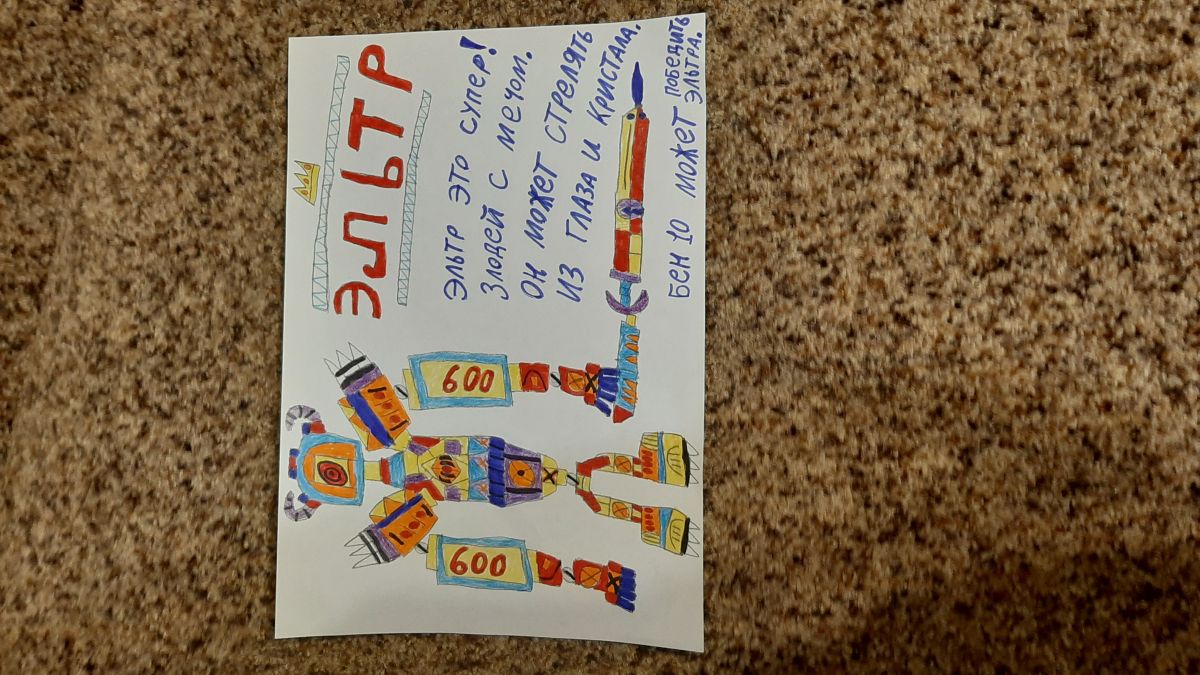 ЭЛЬТР
ЭЛЬТР ЭТО СУПЕР!
ЗЛОДЕЙ С МЕЧОМ.
ОН МОЖЕТ СТРЕЛЯТЬ
ИЗ ГЛАЗА И КРИСТАЛА.
БЕН 10 МОЖЕТ ПОБЕДИТЬ
ЭЛЬТРА.
600
600